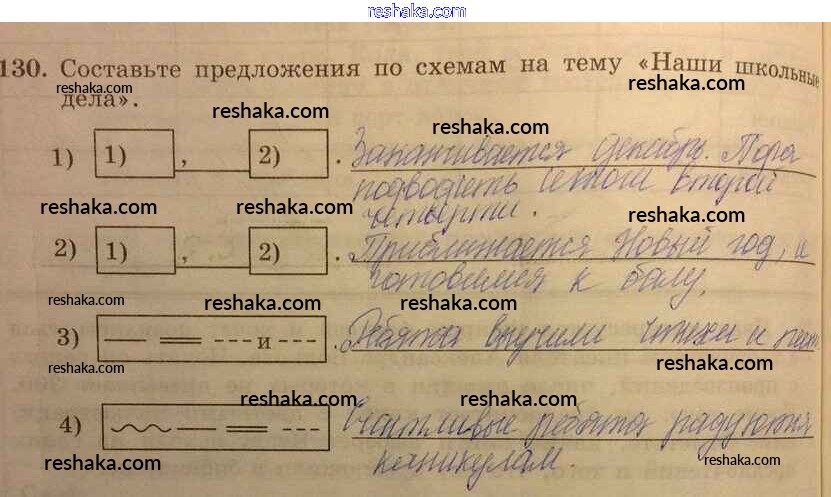 reshaka.com
130. Составьте предложения по схемам на тему «Наши школьные
reshaka.com reshaka.com
дела».
reshaka.com reshaka.com
1) 1) , 2) . Заканчивается декабрь. Пора
подводить итоги второй
reshaka.com reshaka.com reshaka.com
четверти.
2) 1) , 2) . Приближается Новый год, и
готовимся к балу.
reshaka.com reshaka.com reshaka.com
3) --- и --- . Ребята выучили стихи и
reshaka.com reshaka.com
reshaka.com reshaka.com
4) Счастливые ребята радуются
каникулам.
reshaka.com reshaka.com reshaka.com